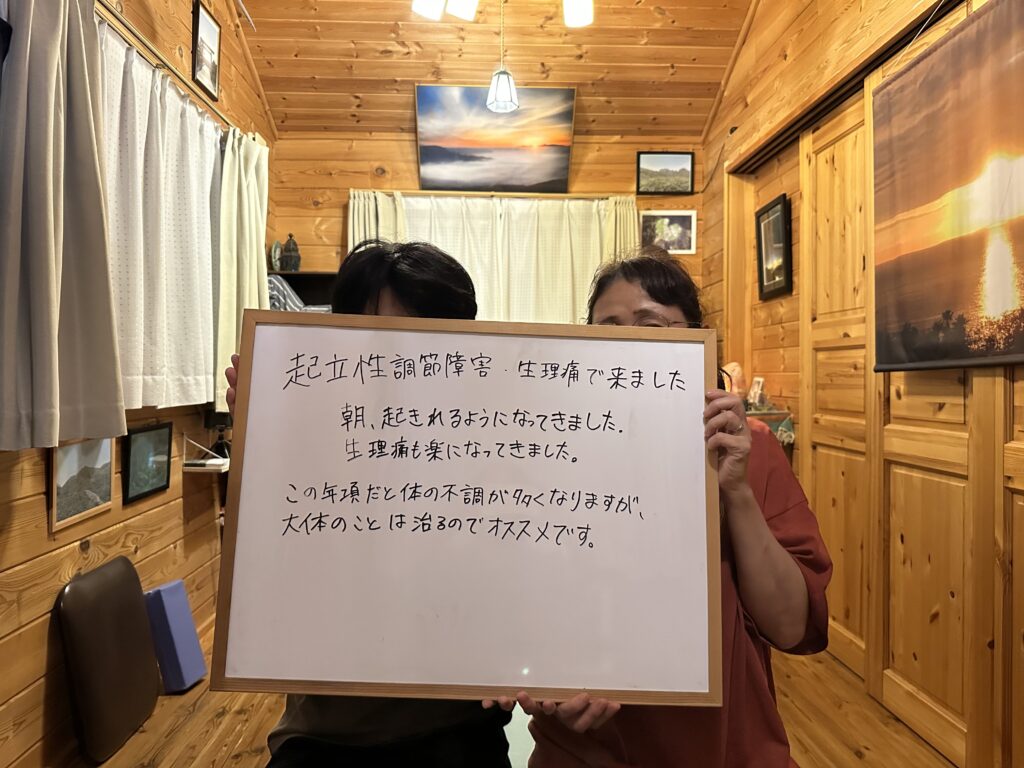 起立性調節障害・生理痛で来ました
朝、起きれるようになってきました。
生理痛も楽になってきました。
この年項だと体の不調が多くなりますが、
大体のことは治るのでオススメです。